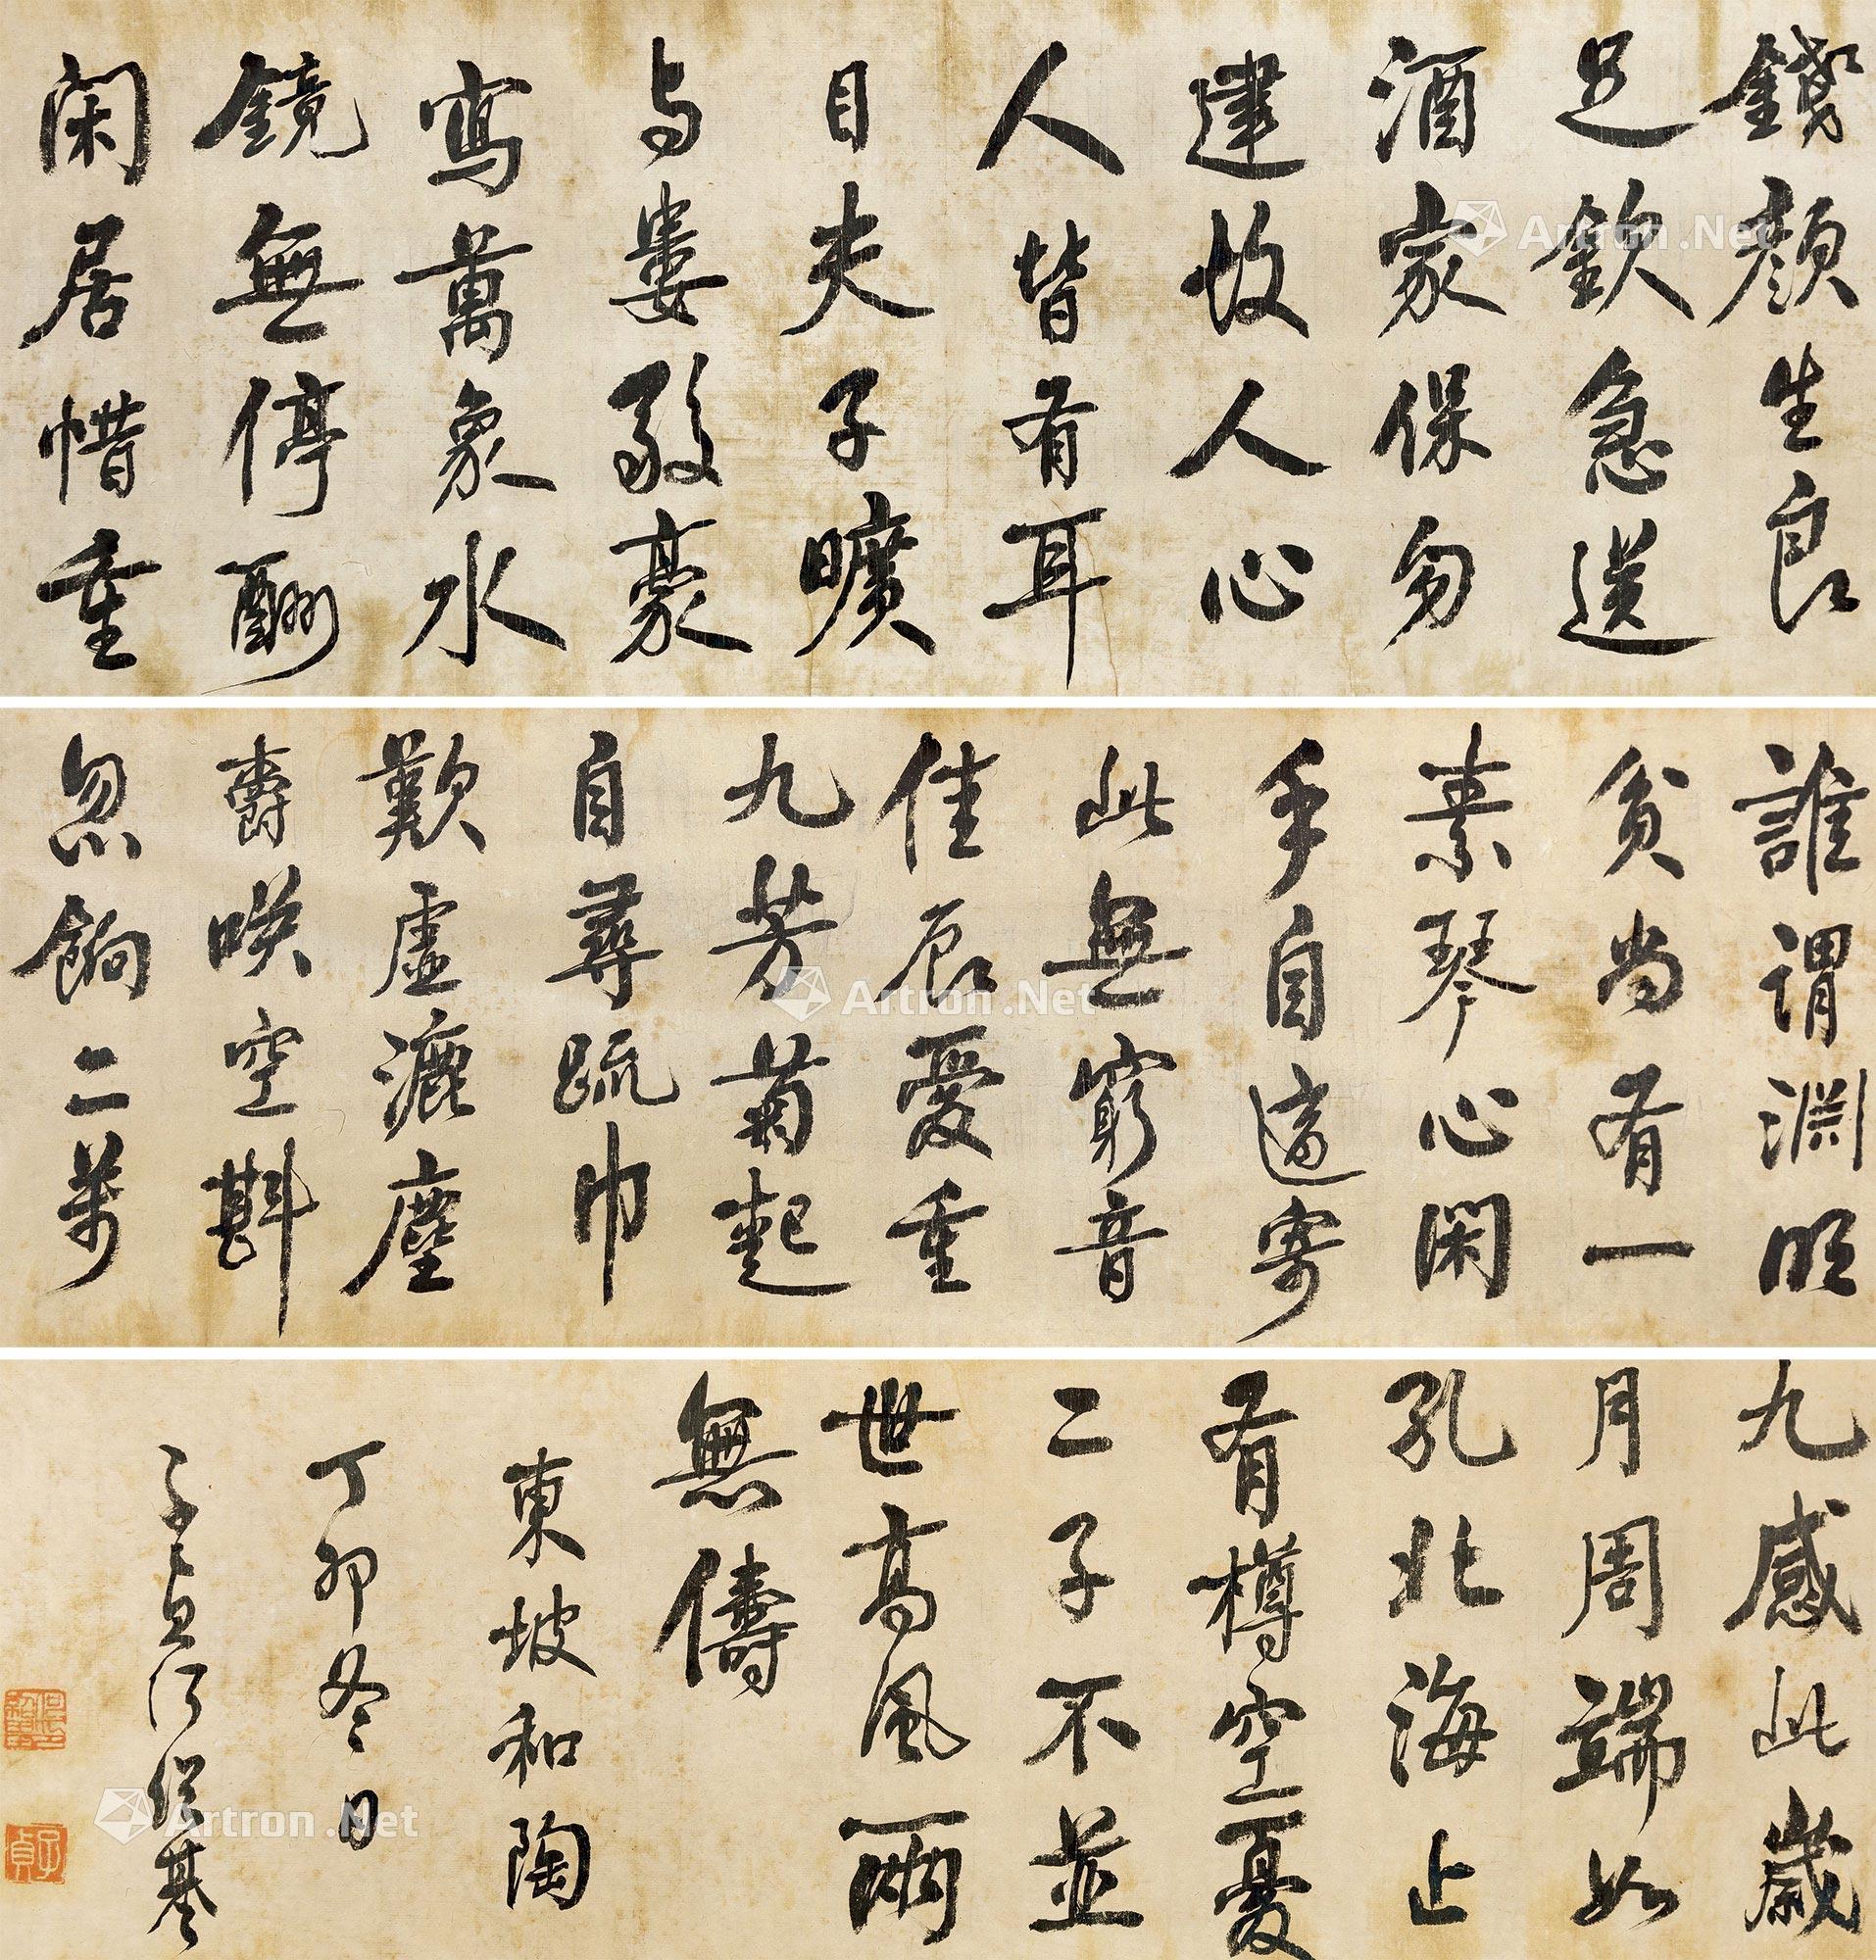 錢顏生良
足欽急送
酒家保勿
違故人心
人皆有耳
目夫子曠
与婁豪
寫萬象水
鏡無停酬
閑居惜重
誰謂淵明
貧尚有一
素琴心閑
手自適寄
此無窮音
佳辰愛重
九芳菊起
自尋疏巾
歎虛漉塵
爵咲空斟
忽餉二萬
九感此歲
月周端如
孔北海止
有樽空憂
二子不並
世高風兩
無儔
東坡和陶
丁卯冬日
子貞何紹基
Artron.Net
Artron.Net
Artron.Net